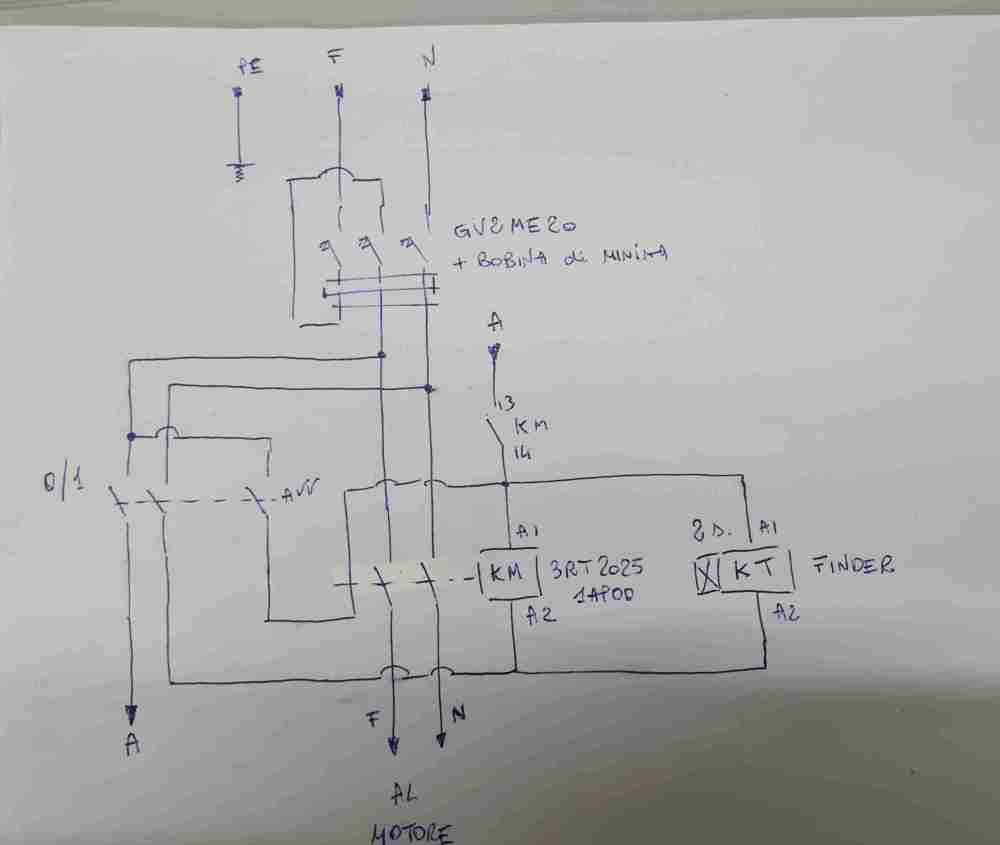 PE
F
N
GV2ME20
+ BOBINA di MINIMA
A
13
KM
14
0/1
AVV
A1
2s.
A1
KM
3RT2025
1AP00
KT
FINDER
A2
A2
A
F
N
AL
MOTORE